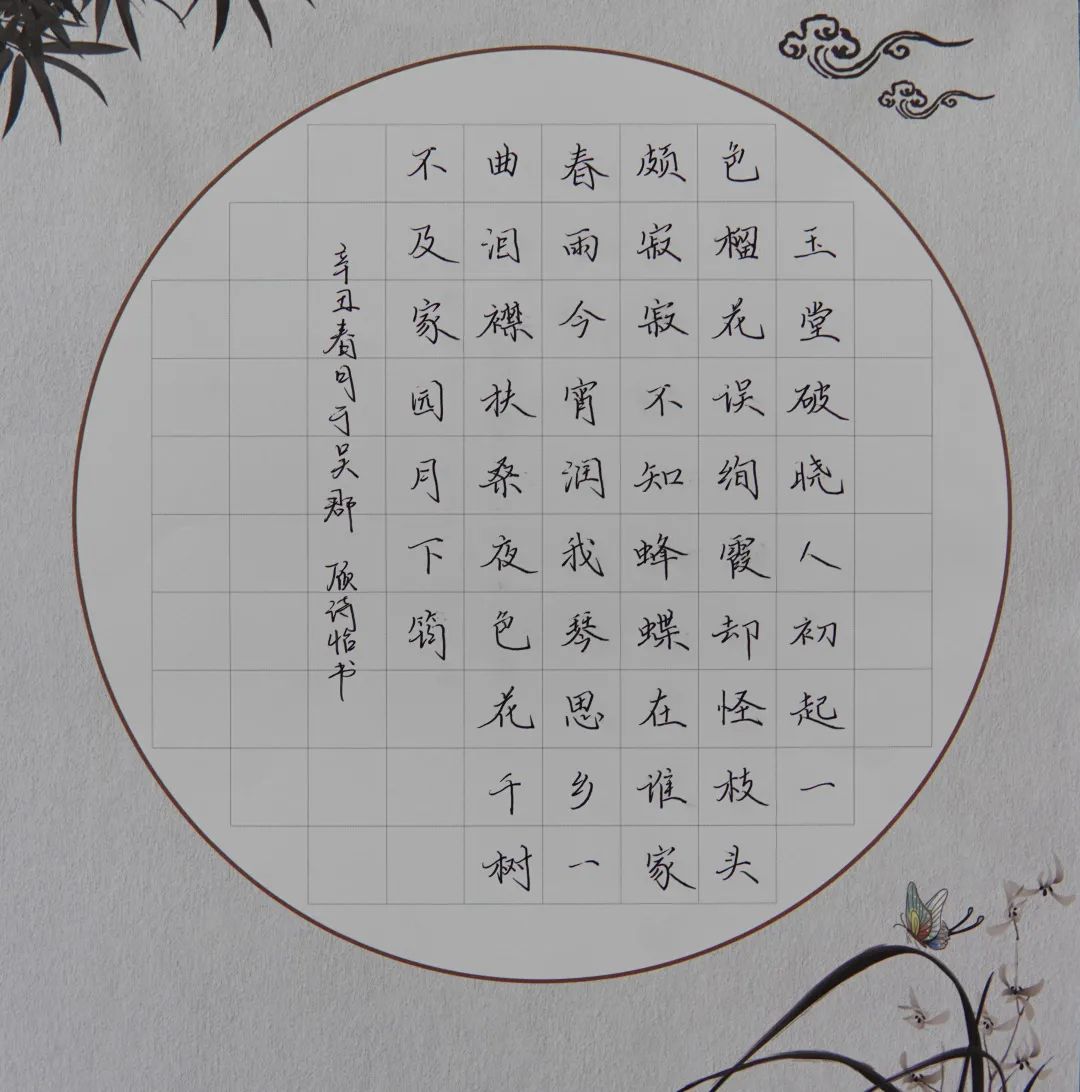 玉堂破晓人初起一
色榴花误绚霞却怪枝头
颇寂寂不知蜂蝶在谁家
春雨今宵润我琴思乡一
曲泪襟扶桑夜色花千树
不及家园月下筠
辛丑春月于吴郡 顾诗怡书